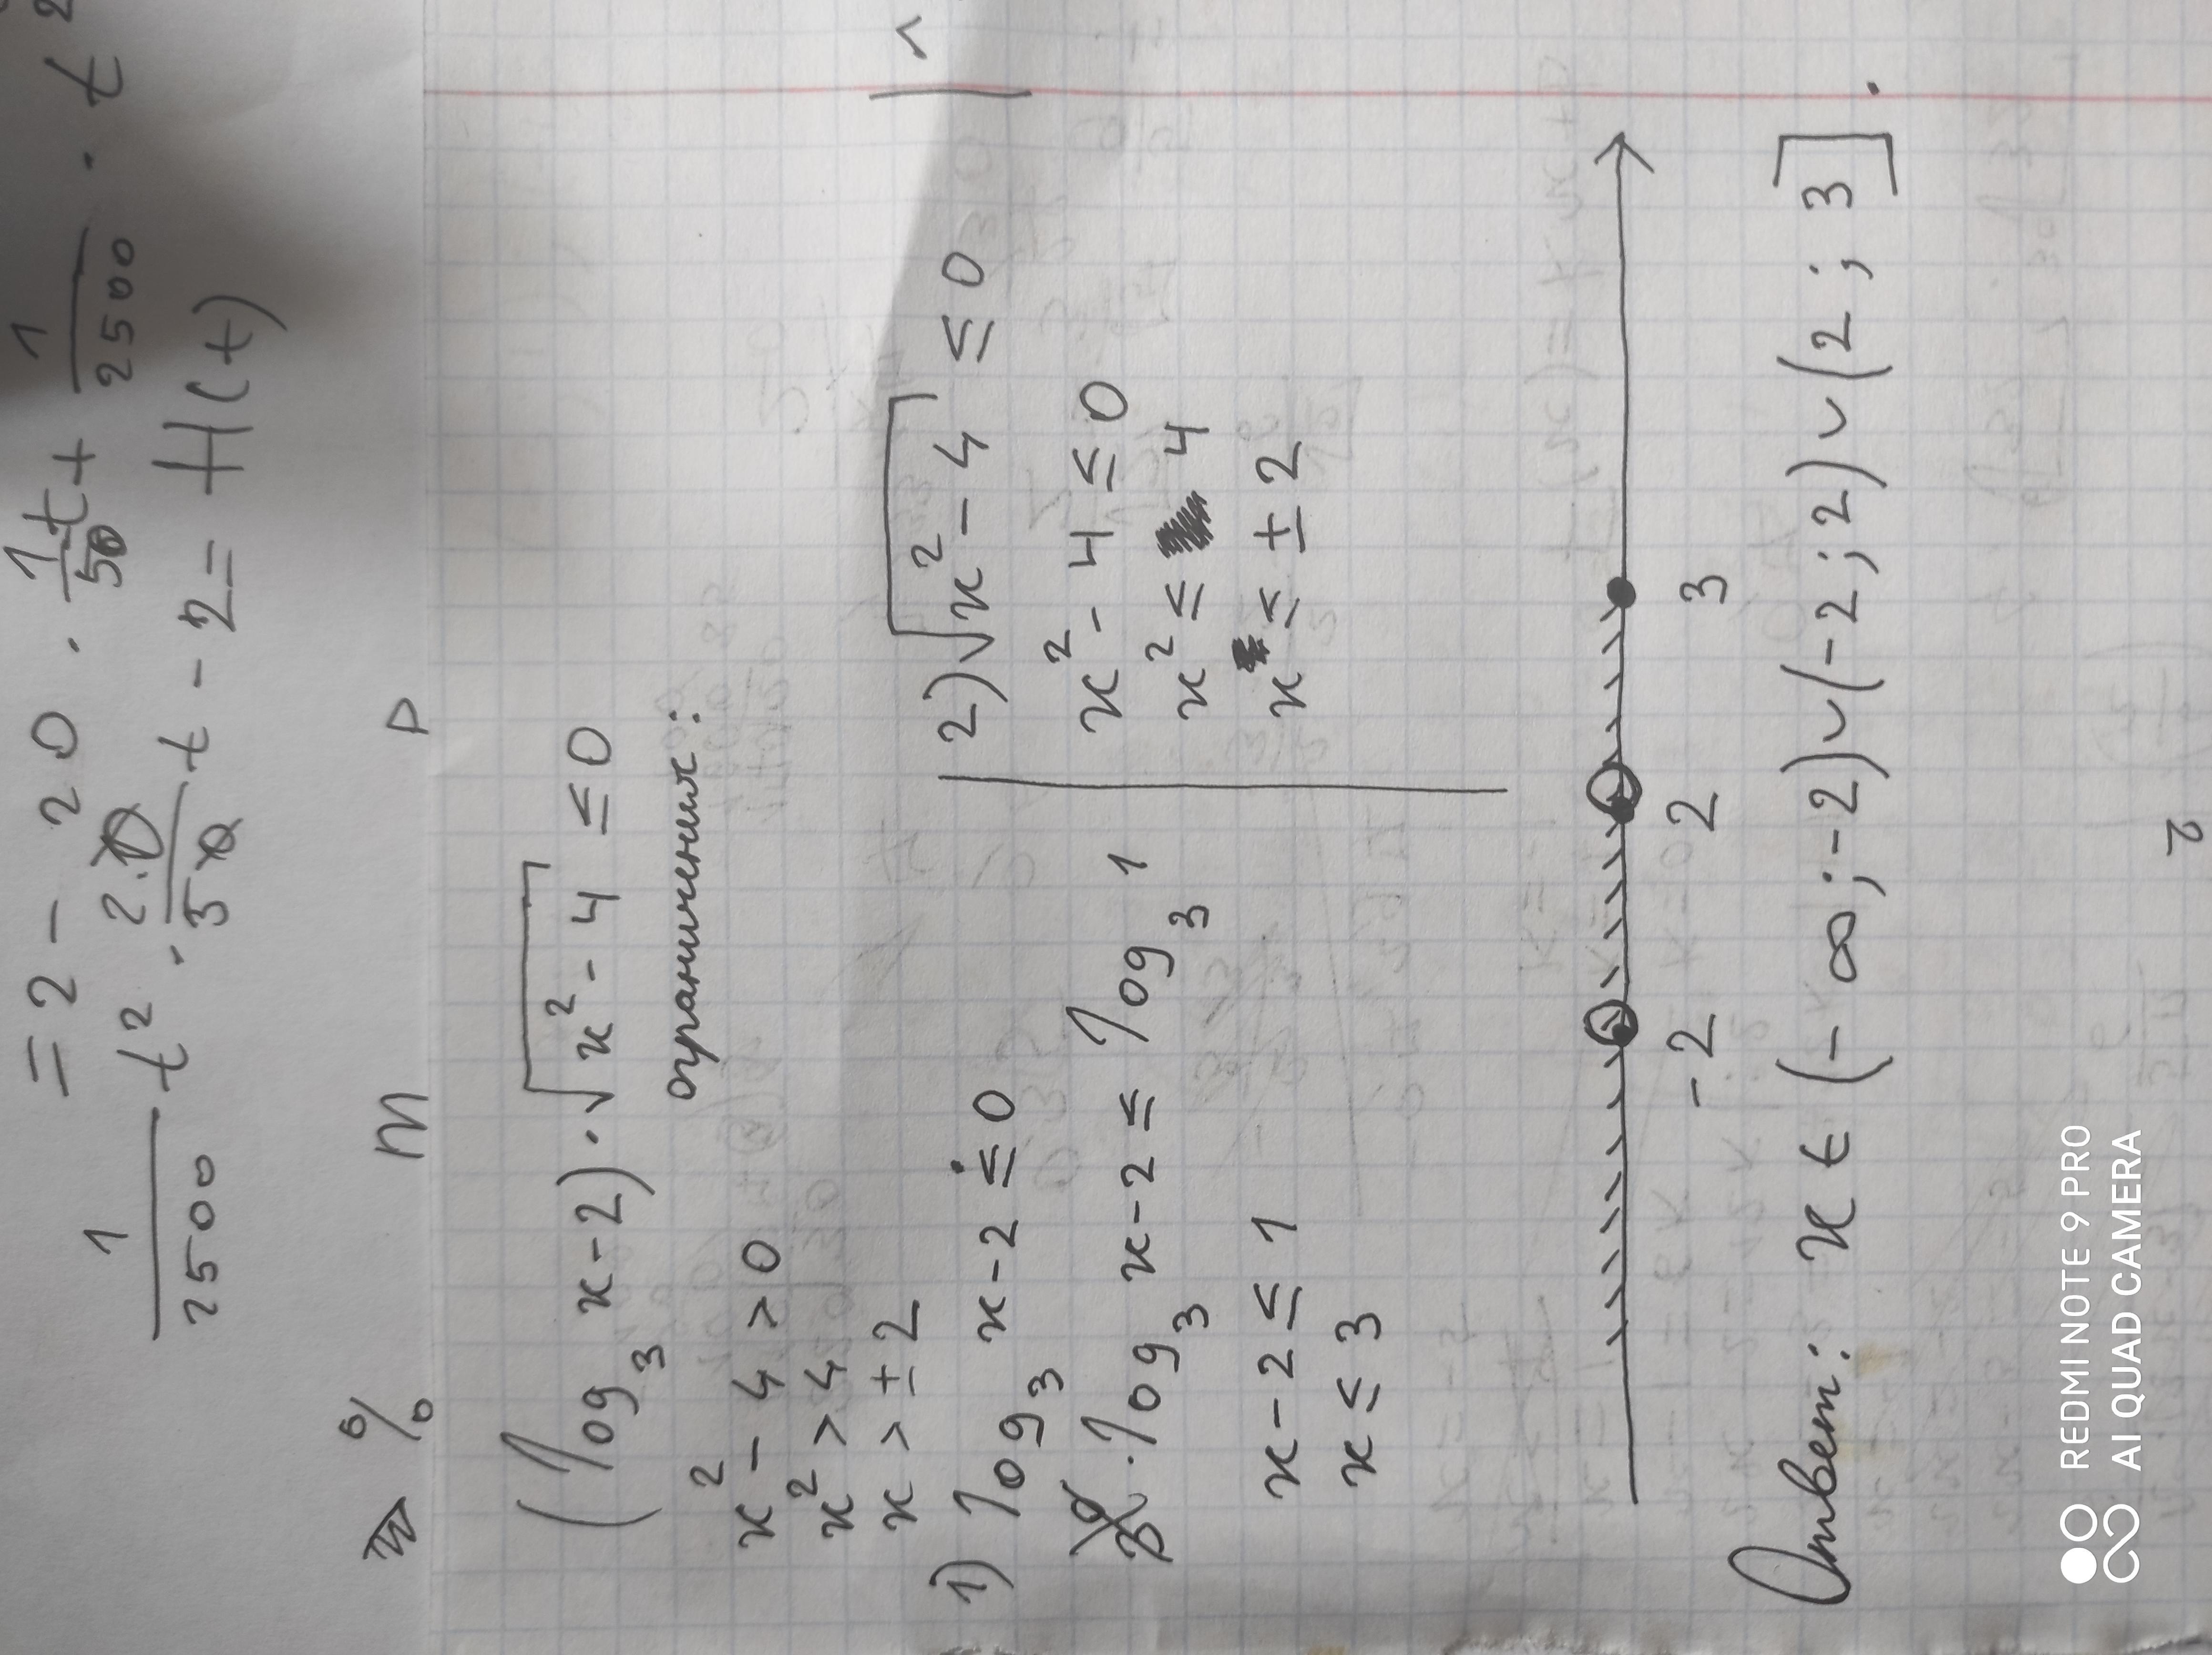 = 2 - 20 · 1/50 t + 1/2500 · t
1/2500 t² · 2·10/50 t - 2 = H(t)
% m p
(log₃ x-2) · √x² - 4 ≤ 0
ограничения:
x² - 4 > 0
x² > 4
x > ± 2
1) log₃ x-2 ≤ 0
· log₃ x-2 ≤ log₃ 1
x-2 ≤ 1
x ≤ 3
2) √x² - 4 ≤ 0
x² - 4 ≤ 0
x² ≤ 4
x ≤ ± 2
-2 2 3
Ответ: x ∈ (-∞; -2) ∪ (-2; 2) ∪ (2; 3].
2
REDMI NOTE 9 PRO
AI QUAD CAMERA